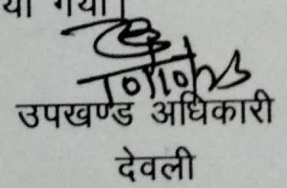 या गया।
उपखण्ड अधिकारी
देवली